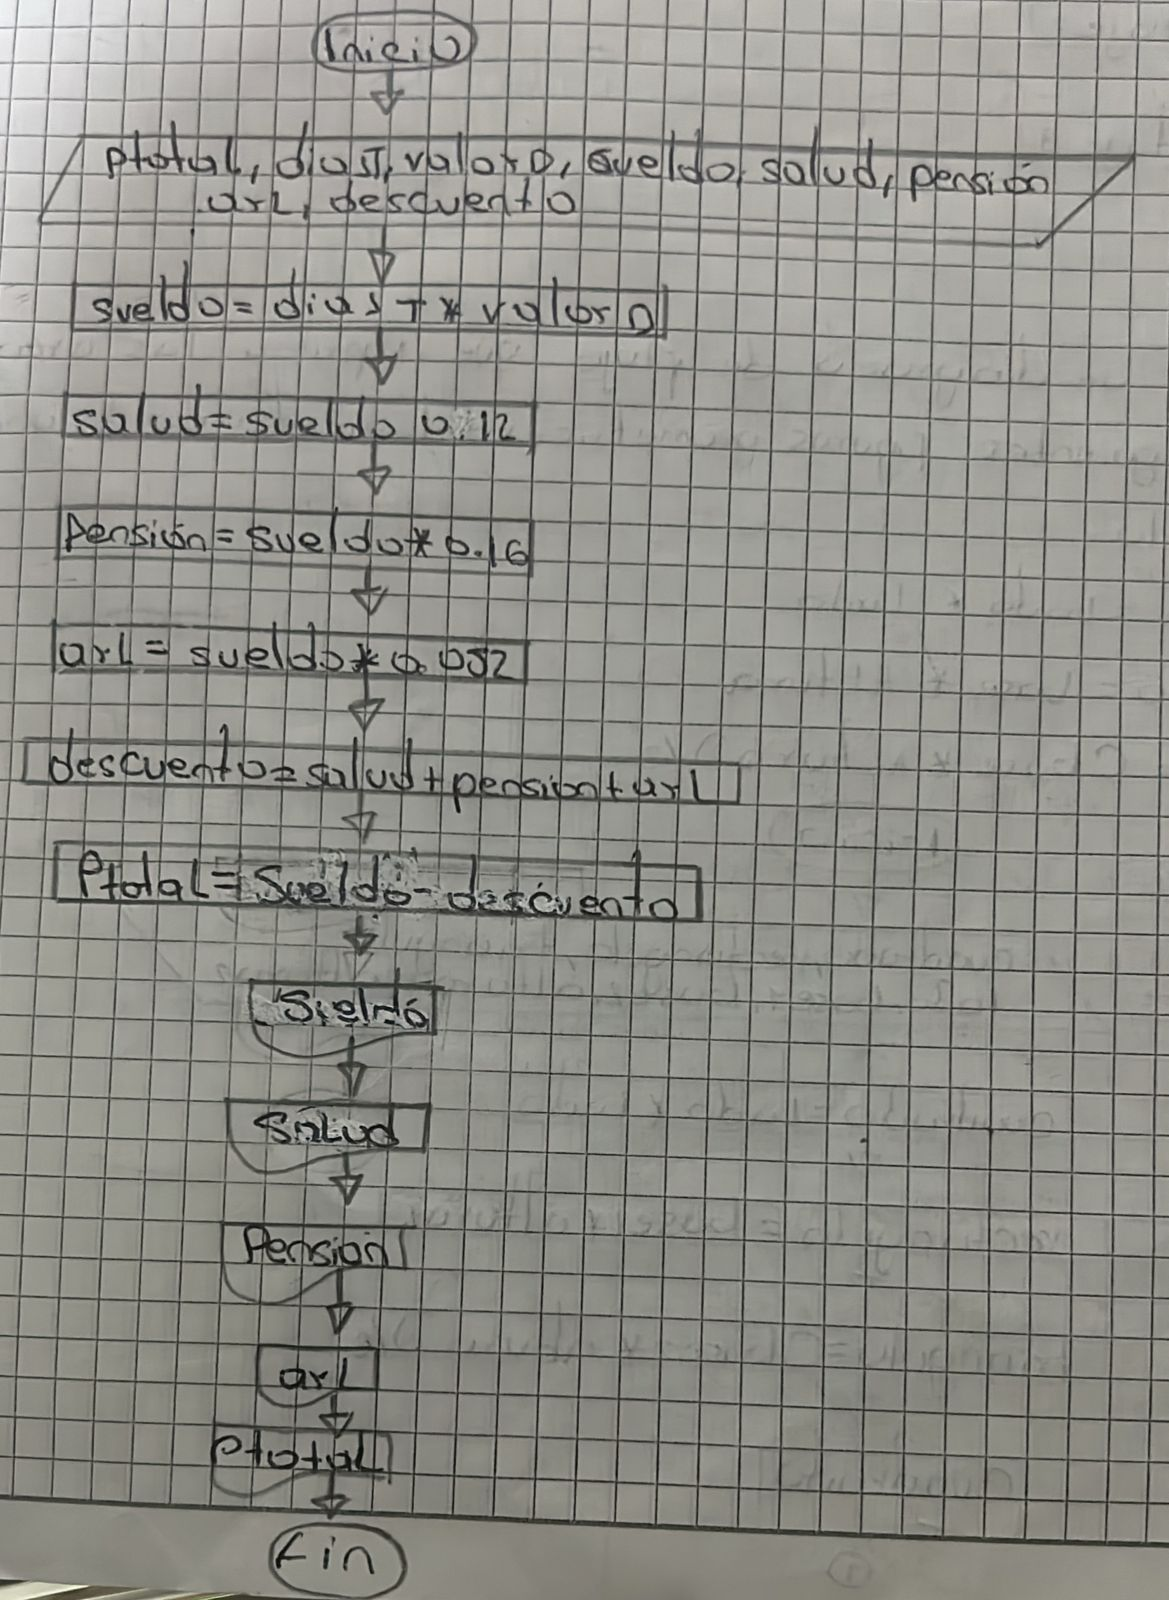 Inicio
ptotal, diasT, valorD, sueldo, salud, pensión
arL, descuento
sueldo = diasT * valorD
salud = sueldo 0.12
Pensión = sueldo * 0.16
arL = sueldo * 0.052
descuento = salud + pension + arL
Ptotal = Sueldo - descuento
Sueldo
Salud
Pension
arL
Ptotal
Fin